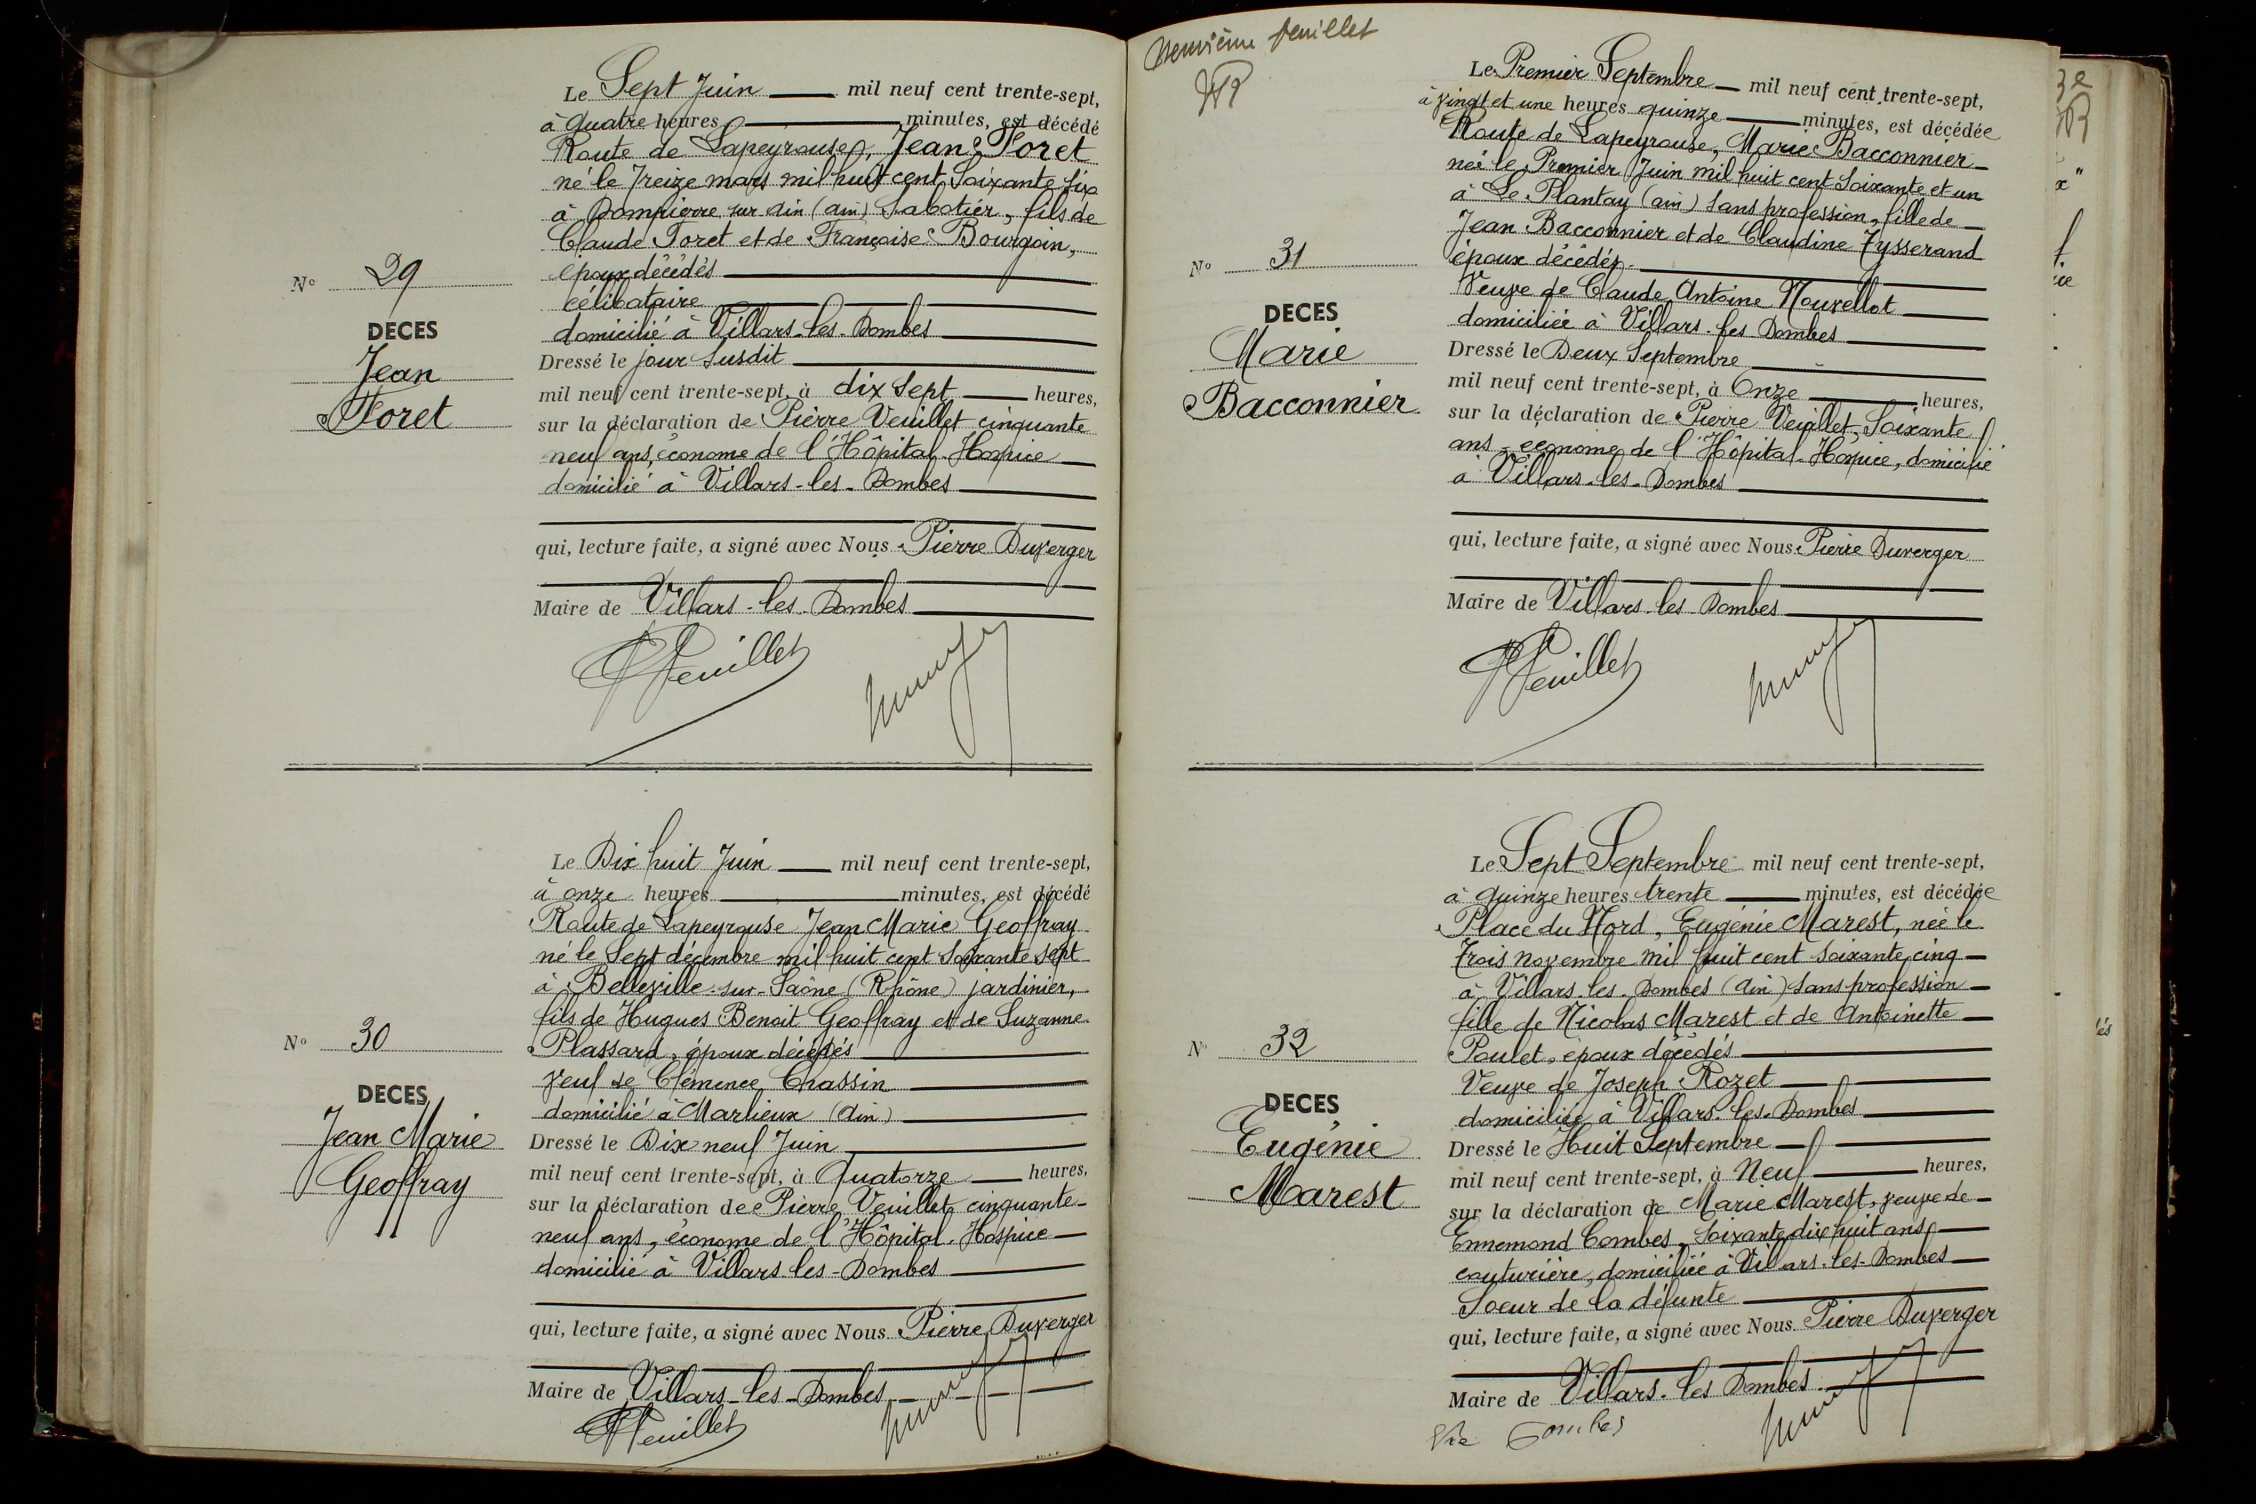 Le Sept Juin mil neuf cent trente-sept,
à quatre heures minutes, est décédé
Route de Lapeyrouse, Jean Foret
né le Treize mars mil huit cent Soixante six
à Dompierre sur Ain (ain) Sabotier, fils de
Claude Foret et de Françoise Bourgoin,
époux décédés
célibataire
domicilié à Villars-les-Dombes
Dressé le jour Susdit
mil neuf cent trente-sept, à dix sept heures,
sur la déclaration de Pierre Veuillet cinquante
neuf ans, économe de l'Hôpital-Hospice
domicilié à Villars-les-Dombes
qui, lecture faite, a signé avec Nous Pierre Duverger
Maire de Villars-les-Dombes
N° 29
DECES
Jean
Foret
PVeuillet
Le Dix huit Juin mil neuf cent trente-sept,
à onze heures minutes, est décédé
Route de Lapeyrouse Jean Marie Geoffray
né le Sept décembre mil huit cent Soixante sept
à Belleville-sur-Saône (Rhône) jardinier,
fils de Hugues Benoit Geoffray et de Suzanne
Plassard, époux décédés
veuf de Clémence Chassin
domicilié à Marlieux (Ain)
Dressé le Dix neuf Juin
mil neuf cent trente-sept, à Quatorze heures,
sur la déclaration de Pierre Veuillet cinquante-
neuf ans, économe de l'Hôpital-Hospice
domicilié à Villars les-Dombes
qui, lecture faite, a signé avec Nous Pierre Duverger
Maire de Villars-les-Dombes
N° 30
DECES
Jean Marie
Geoffray
PVeuillet
Neuvième feuillet
Le Premier Septembre mil neuf cent trente-sept,
à vingt et une heures quinze minutes, est décédée
Route de Lapeyrouse, Marie Bacconnier
née le Premier Juin mil huit cent Soixante et un
à Le Plantay (ain) sans profession, fille de
Jean Bacconnier et de Claudine Tysserand
époux décédés.
Veuve de Claude Antoine Nouvellot
domiciliée à Villars-les Dombes
Dressé le Deux Septembre
mil neuf cent trente-sept, à Onze heures,
sur la déclaration de Pierre Veuillet, Soixante
ans, économe de l'Hôpital-Hospice, domicilié
à Villars-les-Dombes
qui, lecture faite, a signé avec Nous Pierre Duverger
Maire de Villars-les-Dombes
N° 31
DECES
Marie
Bacconnier
PVeuillet
Le Sept Septembre mil neuf cent trente-sept,
à quinze heures trente minutes, est décédée
Place du Nord, Eugénie Marest, née le
Trois novembre mil huit cent soixante cinq
à Villars-les-Dombes (Ain) sans profession
fille de Nicolas Marest et de Antoinette
Poulet, époux décédés
Veuve de Joseph Rozet
domiciliée à Villars-les-Dombes
Dressé le Huit Septembre
mil neuf cent trente-sept, à Neuf heures,
sur la déclaration de Marie Marest, veuve de
Ennemond Combes, soixante dix huit ans
couturière, domiciliée à Villars-les-Dombes
Soeur de la défunte
qui, lecture faite, a signé avec Nous Pierre Duverger
Maire de Villars-les Dombes
N° 32
DECES
Eugénie
Marest
Vve Combes